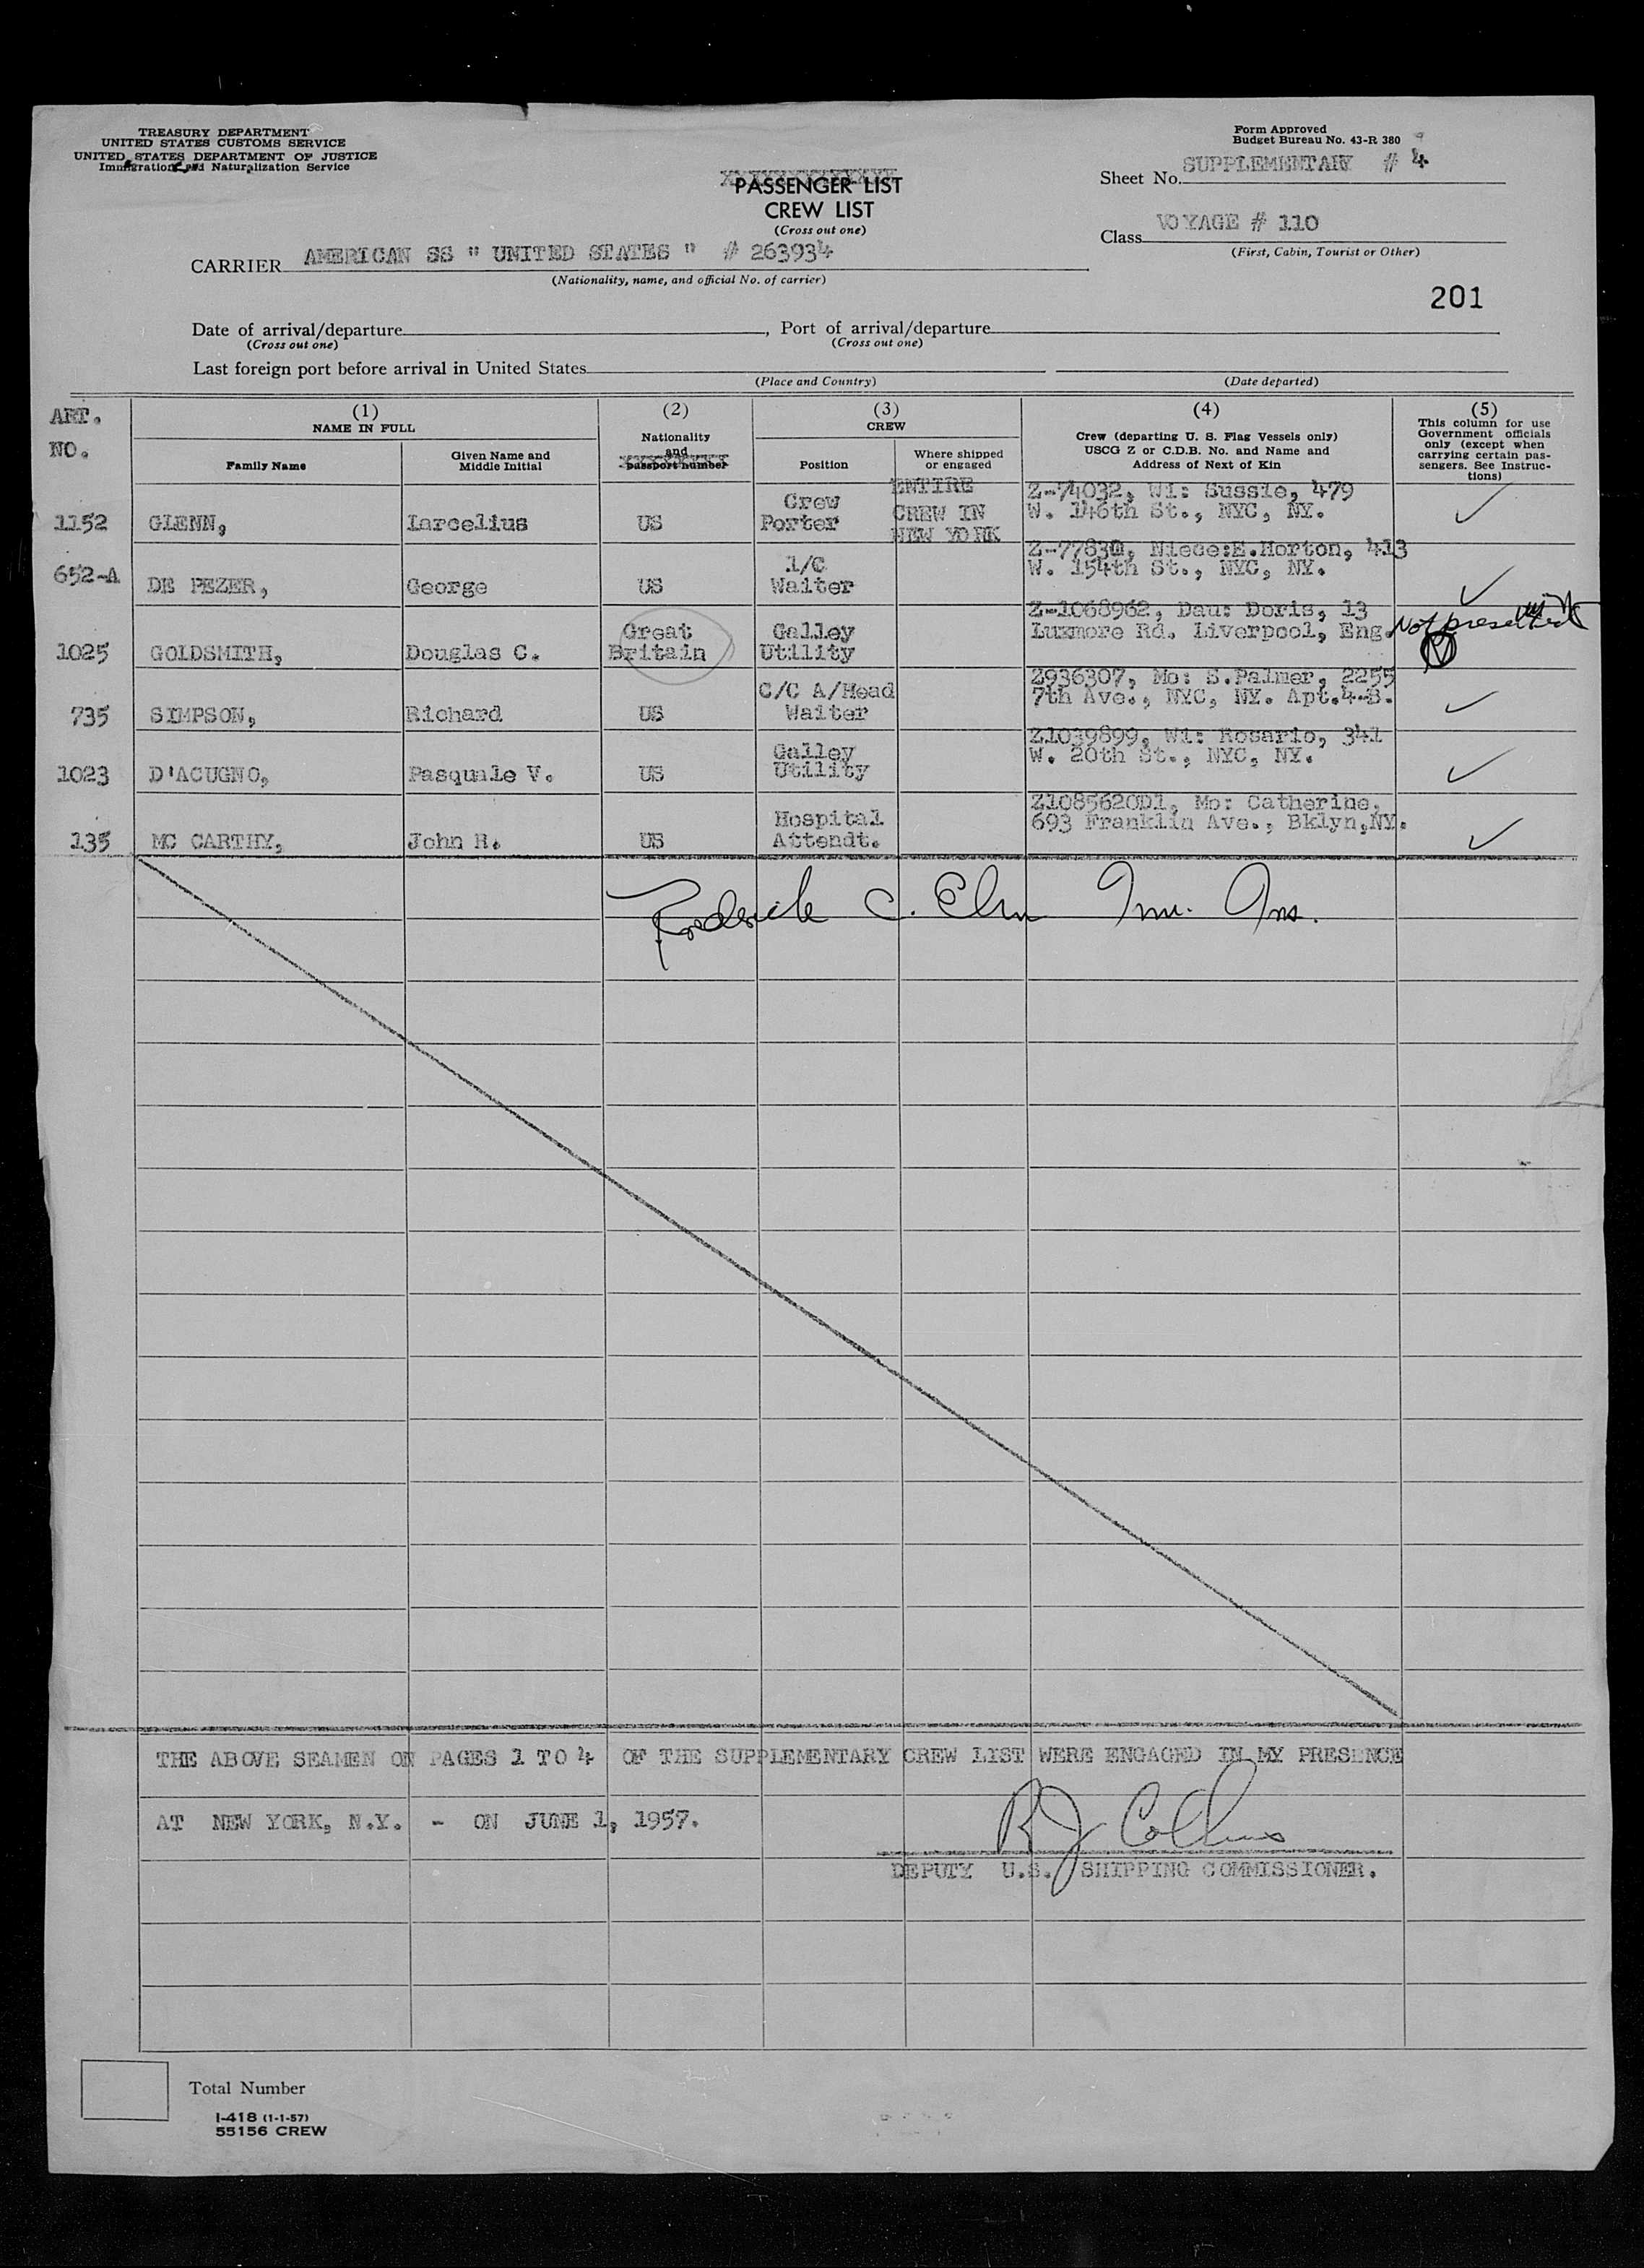 TREASURY DEPARTMENT
UNITED STATES CUSTOMS SERVICE
UNITED STATES DEPARTMENT OF JUSTICE
Immigration and Naturalization Service
Form Approved
Budget Bureau No. 43-R 380
Sheet No. SUPPLEMENTARY # 4
PASSENGER LIST
CREW LIST
(Cross out one)
Class VOYAGE # 110
(First, Cabin, Tourist or Other)
CARRIER AMERICAN SS " UNITED STATES " # 263934
(Nationality, name, and official No. of carrier)
201
Date of arrival/departure , Port of arrival/departure
(Cross out one) (Cross out one)
Last foreign port before arrival in United States
(Place and Country) (Date departed)
ART. NO.
(1) NAME IN FULL
Family Name
Given Name and Middle Initial
(2) Nationality and passport number
(3) CREW
Position
Where shipped or engaged
(4) Crew (departing U. S. Flag Vessels only) USCG Z or C.D.B. No. and Name and Address of Next of Kin
(5) This column for use Government officials only (except when carrying certain passengers. See Instructions)
1152 GLENN, Larcelius US Crew Porter ENTIRE CREW IN NEW YORK Z-74032, Wi: Sussie, 479 W. 146th St., NYC, NY.
652-A DE PEZER, George US 1/C Waiter Niece:E.Horton, 413 W. 154th St., NYC, NY.
1025 GOLDSMITH, Douglas C. Great Britain Galley Utility Z-1068962, Dau: Doris, 13 Luxmore Rd. Liverpool, Eng. Not presented
735 SIMPSON, Richard US C/C A/Head Waiter Z936307, Mo: S.Palmer, 2255 7th Ave., NYC, NY. Apt.4-B.
1023 D'ACUGNO, Pasquale V. US Galley Utility Z1039899, Wi: Rosario, 341 W. 20th St., NYC, NY.
135 MC CARTHY, John R. US Hospital Attendt. Z1085620D1, Mo: Catherine, 693 Franklin Ave., Bklyn,NY.
Roderick C.
THE ABOVE SEAMEN ON PAGES 1 TO 4 OF THE SUPPLEMENTARY CREW LIST WERE ENGAGED IN MY PRESENCE
AT NEW YORK, N.Y. - ON JUNE 1, 1957.
RJ Collins
DEPUTY U.S. SHIPPING COMMISSIONER.
Total Number
I-418 (1-1-57)
55156 CREW